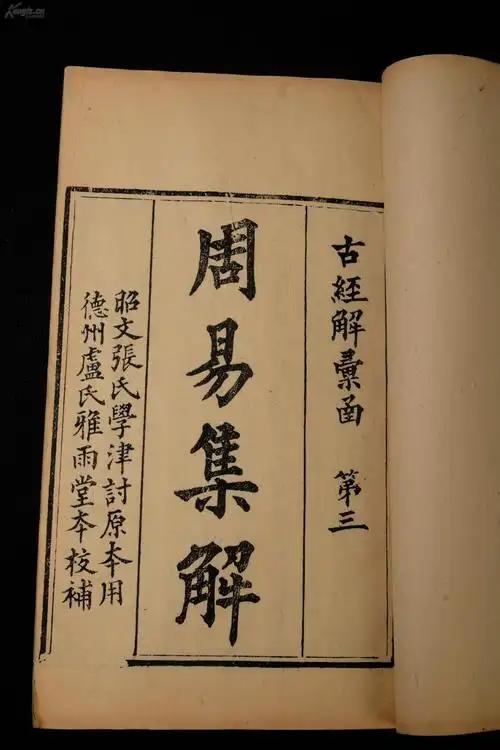 古經解彙函 第三
周易集解
昭文張氏學津討原本用
德州盧氏雅雨堂本校補